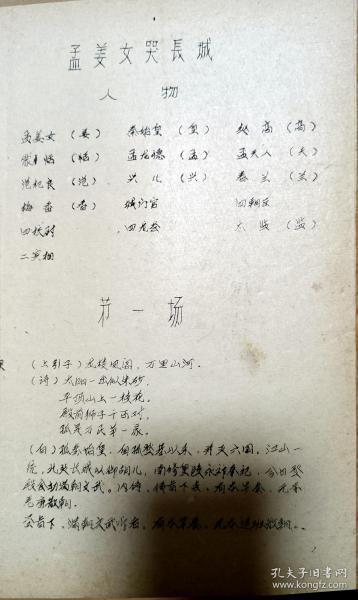 孟姜女哭長城
人物
孟姜女（姜） 秦始皇（皇） 赵高（高）
蒙恬（恬） 孟龙德（孟） 孟夫人（夫）
范杞良（范） 兴儿（兴） 春兰（兰）
梅香（香） 城门官 四朝臣
四校尉 四龙套 太监（监）
二宾相
第一场
（上引子）龙楼凤阁，万里山河．
（诗）太阳一出似朱砂．
平顶山上一枝花．
殿前狮子千百对．
孤是万民第一家．
（白）孤秦始皇．自孤登基以来，并灭六国，江山一
统，北筑长城以御胡儿，南修皇陵永祚秦祀，今日登
殿会动满朝文武．内侍，传旨下去，有本早奏，无本
卷帘散朝．
旨下，满朝文武听者，有本早奏，无本退班散朝．
孔夫子旧书网